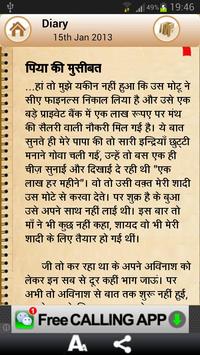 19:46
Diary
15th Jan 2013
पिया की मुसीबत
...हां तो मुझे यकीन नहीं हुआ कि उस मोटू ने
सीए फाइनल्स निकाल लिया है और उसे एक
बड़े प्राइवेट बैंक में एक लाख रूपए पर मंथ
की सैलरी वाली नौकरी मिल गई है। ये बात
सुनते ही मेरे पापा की तो सारी इन्द्रियाँ छुट्टी
मनाने गोवा चली गई, उन्हें तो बस एक ही
चीज़ सुनाई और दिखाई दे रही थी "एक
लाख हर महीने"। वो तो उसी वक़्त मेरी शादी
उस मोटे से करवा देते। पर शुक्र है के बुआ
उस वक़्त साथ नहीं लाई थी। इस बार तो
माँ ने भी कुछ नहीं कहा, शायद वो भी मेरी
शादी के लिए तैयार हो गई थीं।
जी तो कर रहा था के अपने अविनाश को
लेकर इन सब से दूर कहीं भाग जाऊं। पर
अभी तो अविनाश से बात तक शुरू नहीं हुई
1
Free CALLING APP
A A